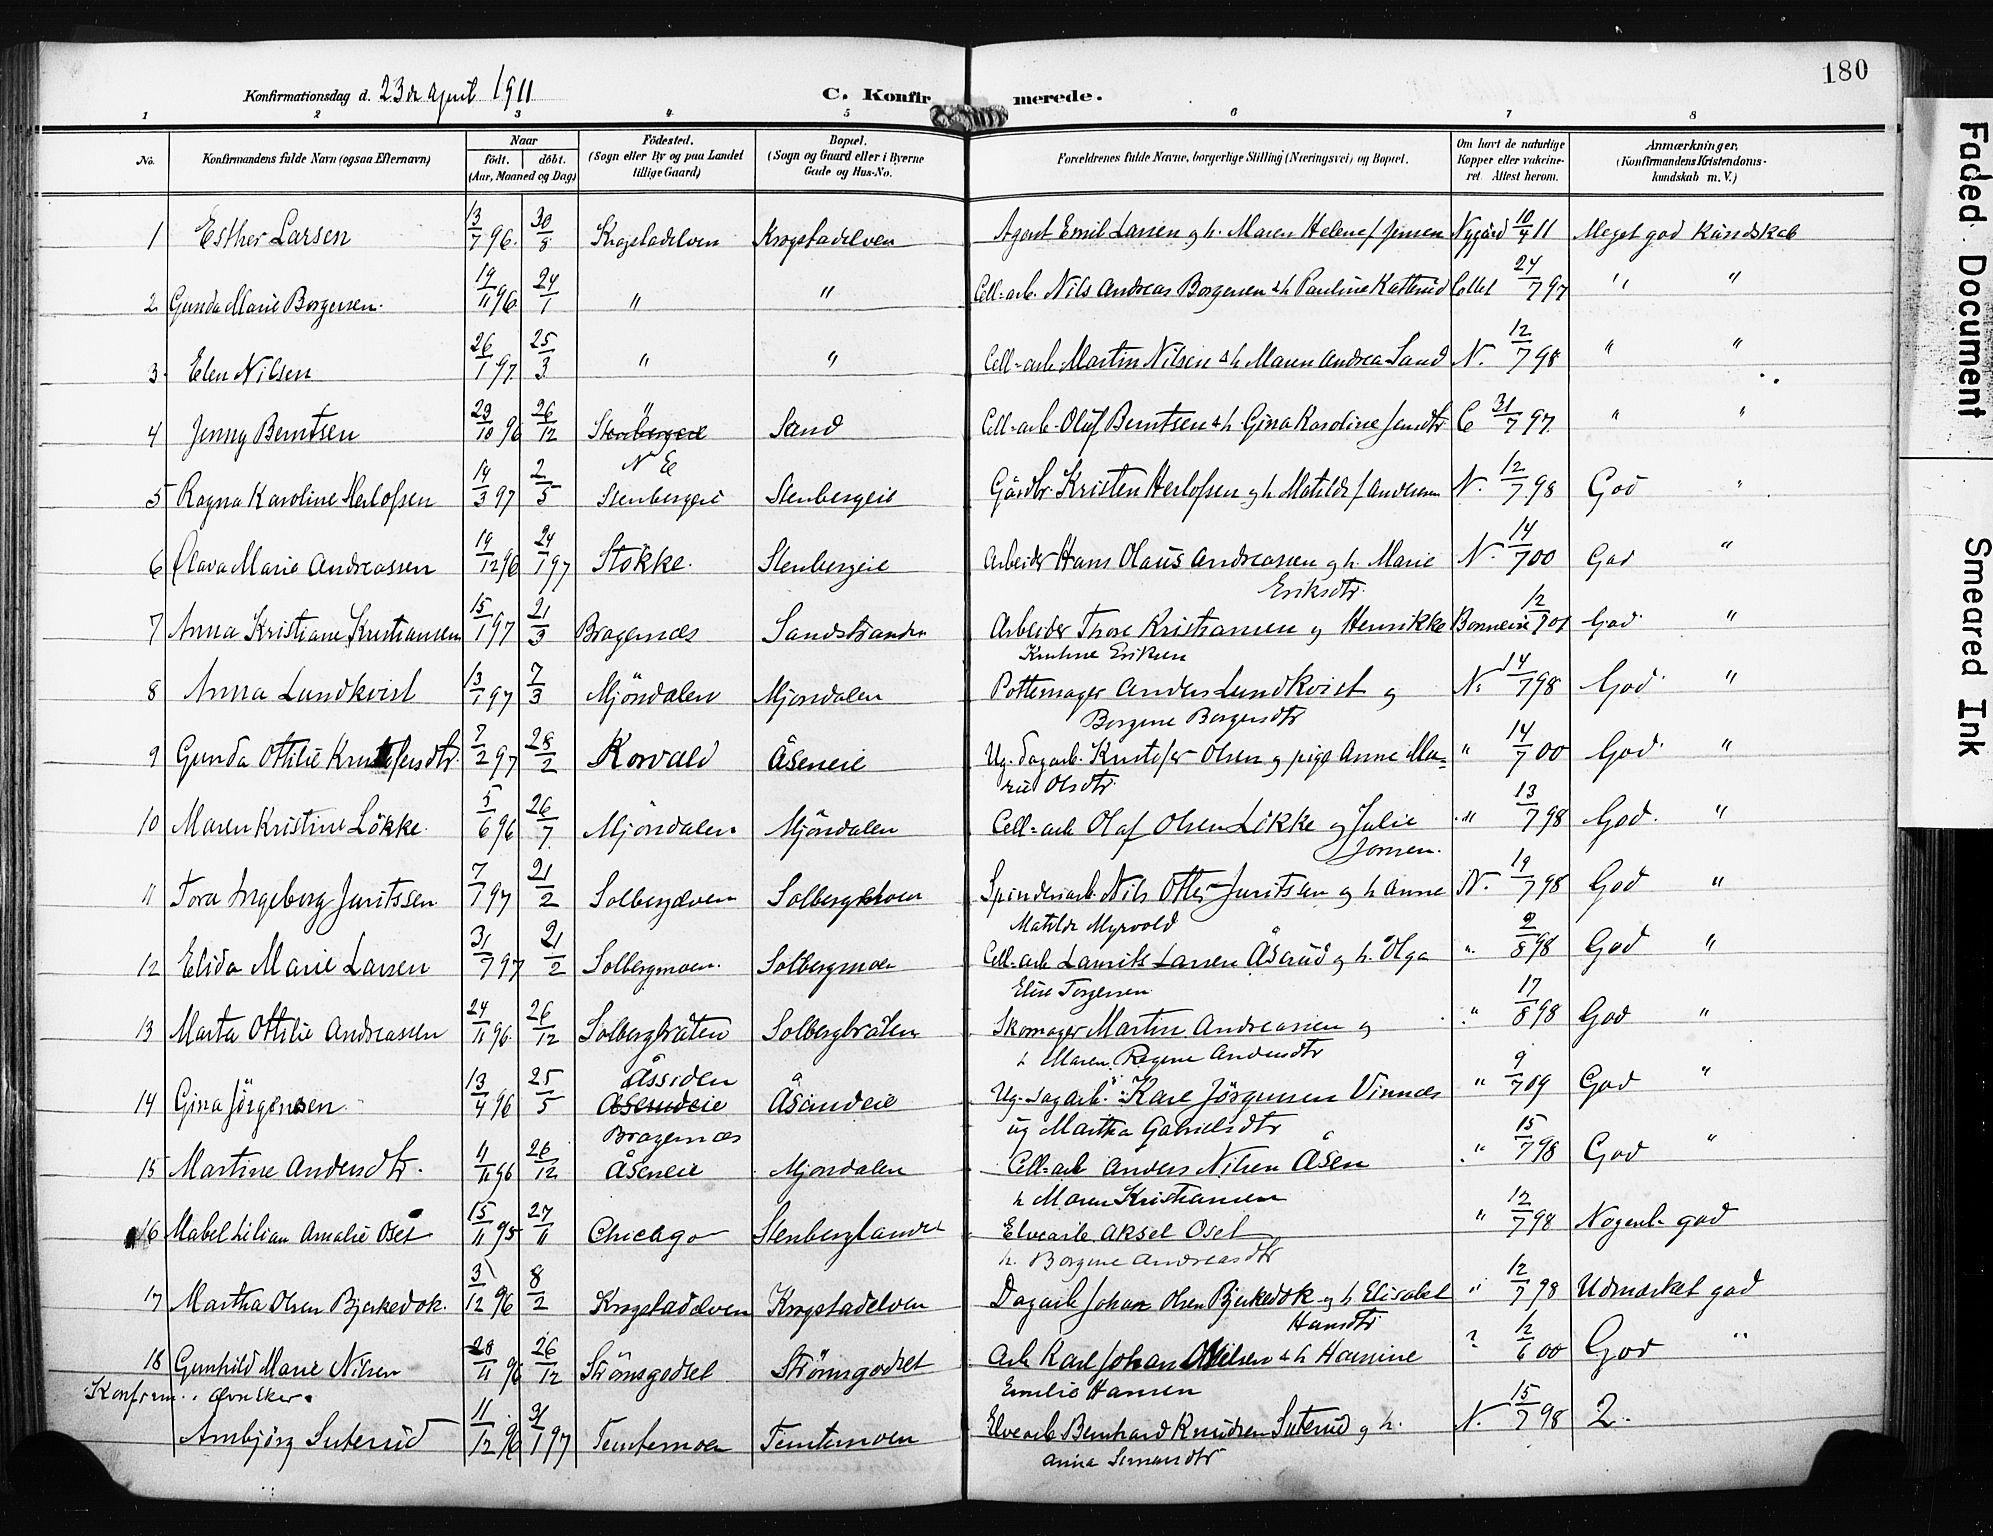 180
Konfirmationsdag d. 23de April 1911
C. Konfirmerede.
1 2 3 4 5 6 7 8
No. Konfirmandens fulde Navn (ogsaa Efternavn) Naar født. døbt. (Aar, Maaned og Dag) Fødested. (Sogn eller By og paa Landet tillige Gaard) Bopæl. (Sogn og Gaard eller i Byerne Gade og Hus-No. Forældrenes fulde Navne, borgerlige Stilling (Næringsvei) og Bopæl. Om havt de naturlige Kopper eller vaccineret. Attest herom. Anmærkninger, (Konfirmandens Kristendomskundskab m. V.)
1 Esther Larsen 13/7 96. 30/8 Krogstadelven Krogstadelven Agent Emil Larsen og h. Maren Helene f Jensen Nygård 10/4 11 Meget god Kundskab
2 Gunda Marie Borgersen. 19/11 96 24/1 " " Cell=arb. Nils Andreas Borgersen & h Pauline Katterud Collet 24/7 97 " "
3. Elen Nilsen 26/1 97 25/3 " " Cell=arb. Martin Nilsen & h Maren Andrea Sand N. 12/7 98 " "
4 Jenny Berntsen 29/10 96 26/12 " Stenbergeie Sand Cell=arb. Oluf Berntsen & h Gina Karoline Jensdtr C 31/7 97 " "
N E
5 Ragna Karoline Herlofsen 19/3 97 2/5 Stenbergeie Stenbergeie Gårdbr. Kristen Herlofsen og h Matilde f Andersen N. 12/7 98 God "
6 Olava Marie Andreassen 19/12 96 24/1 97 Stokke. Stenbergeie Arbeider Hans Olaus Andreassen og h. Marie N. 14/7 00 God "
Eriksdtr.
7 Anna Kristiane Kristiansen 15/1 97 21/3 Bragernæs Sandstranden Arbeider Thore Kristiansen og Henrikke 12/7 01 God "
Eriksen
8 Anna Lundkvist 13/1 97 7/3 Mjöndalen Mjondalen Pottemager Anders Lundkvist og N. 14/7 98 God "
Borgene Borgersdtr
9 Gunda Ottilie Kristofersdtr. 2/2 97 28/2 Korvald Åseneie Ug. dagarb. Kristofer Olsen og pige Anne Ma- " 14/7 00 God "
rie Olsdtr.
10 Maren Kristine Lökke. 5/6 96 26/7 Mjöndalen Mjöndalen Cell=arb Olaf Olsen Lökke og Julie " 13/7 98 God. "
Jonsen.
11 Tora Ingeborg Juritssen 7/1 97 21/2 Solbergelven Solbergelven Spinderiarb. Nils Otter Juritsen og h Anne N. 19/7 98 God "
Matilde Myrvold
12 Elida Marie Larsen 31/7 97 21/2 Solbergmoen. Solbergmoen Cell=arb Laurits Larsen Åserud og h. Olga " 2/8 98 God "
Elise Torgersen
13 Marta Ottilie Andreassen 24/11 96. 26/12 Solbergbråten Solbergbråten Skomager Martin Andreassen og " 17/8 98 God "
h Maren Regine Andersdtr
Åssiden
14 Gina Jörgensen. 13/4 96 25/5 Åserudeie Åserudeie Ug. dagarb. Karl Jörgensen Vinnæs " 9/7 09 God "
og Martha Gabrielsdtr
Bragernæs
15 Martine Andersdtr. 11/11 96 26/12 Åseneie Mjondalen Cell=arb Anders Nilsen Åsen " 15/7 98 God "
h Maren Kristiansen
16 Mabel Lilian Amalie Oset 15/11 95 27/11 Chicago Stenberglandet Elvearb. Aksel Oset " 12/7 98 Nogenl. god
h. Borgine Andreasdtr
17 Martha Olsen Bjerkedok. 3/12 96 8/2 Krogstadelven Krogstadelven Dagarb Johan Olsen Bjerkedok og h Elisabet " 12/7 98 Udmærket god
Hansdtr
18 Gunhild Marie Nilsen 20/11 96 26/12 Strömsgodset Strömsgodset Arb Karl Johan Nilsen & h Hansine " 12/6 00 God "
Emilie Hansen
Konfirm. i Ovneker.
Arnbjörg Suterud 11/12 96 31/1 97 Temtemoen Temtemoen Elvearb Bernhard Knudsen Suterud og h. N. 15/7 98 2.
Anna Simensdtr
Faded Document
Smeared Ink